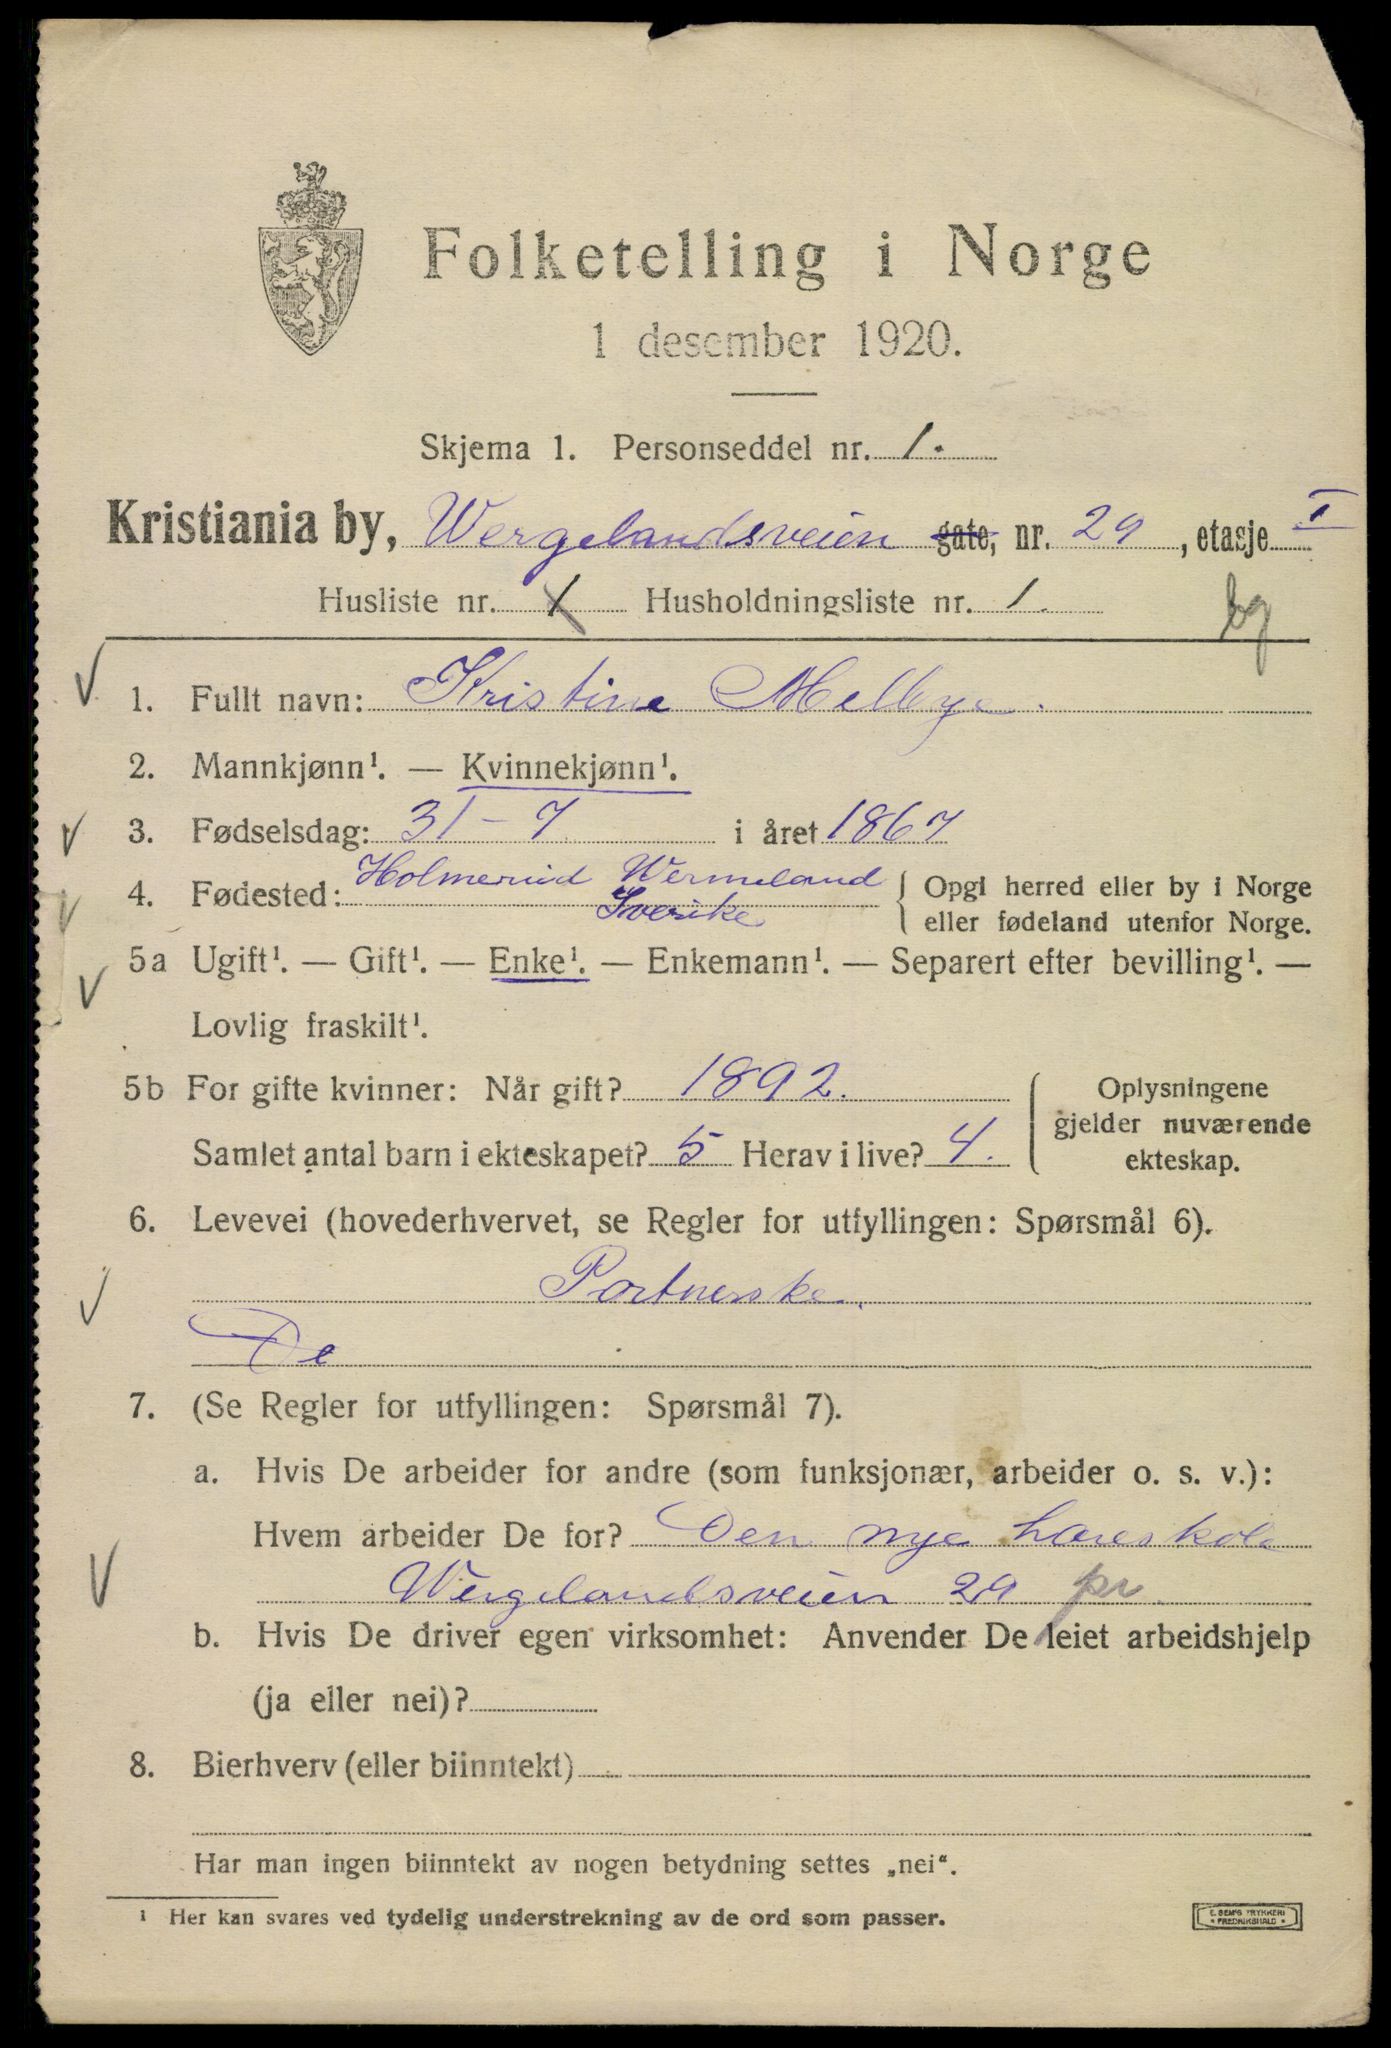 Folketelling i Norge
1 desember 1920.
Skjema 1. Personseddel nr. 1.
Kristiania by, Wergelandsveien gate, nr. 29, etasje I
Husliste nr. 1 Husholdningsliste nr. 1.
bg
1. Fullt navn: Kristine Melbye.
2. Mannkjønn¹. — Kvinnekjønn¹.
3. Fødselsdag: 31-7 i året 1867
4. Fødested: Holmerud Wermeland { Opgi herred eller by i Norge
Sverike eller fødeland utenfor Norge.
5a Ugift¹. — Gift¹. — Enke¹. — Enkemann¹. — Separert efter bevilling¹. —
Lovlig fraskilt¹.
5b For gifte kvinner: Når gift? 1892. Oplysningene
gjelder nuværende
Samlet antal barn i ekteskapet? 5 Herav i live? 4. ekteskap.
6. Levevei (hovederhvervet, se Regler for utfyllingen: Spørsmål 6).
Portnerske.
De
7. (Se Regler for utfyllingen: Spørsmål 7).
a. Hvis De arbeider for andre (som funksjonær, arbeider o. s. v.):
Hvem arbeider De for? Den nye høreskole
Wergelandsveien 29 pr
b. Hvis De driver egen virksomhet: Anvender De leiet arbeidshjelp
(ja eller nei)?
8. Bierhverv (eller biinntekt)
Har man ingen biinntekt av nogen betydning settes „nei“.
¹ Her kan svares ved tydelig understrekning av de ord som passer.
E. SEM'S TRYKKERI
FREDRIKSHALD